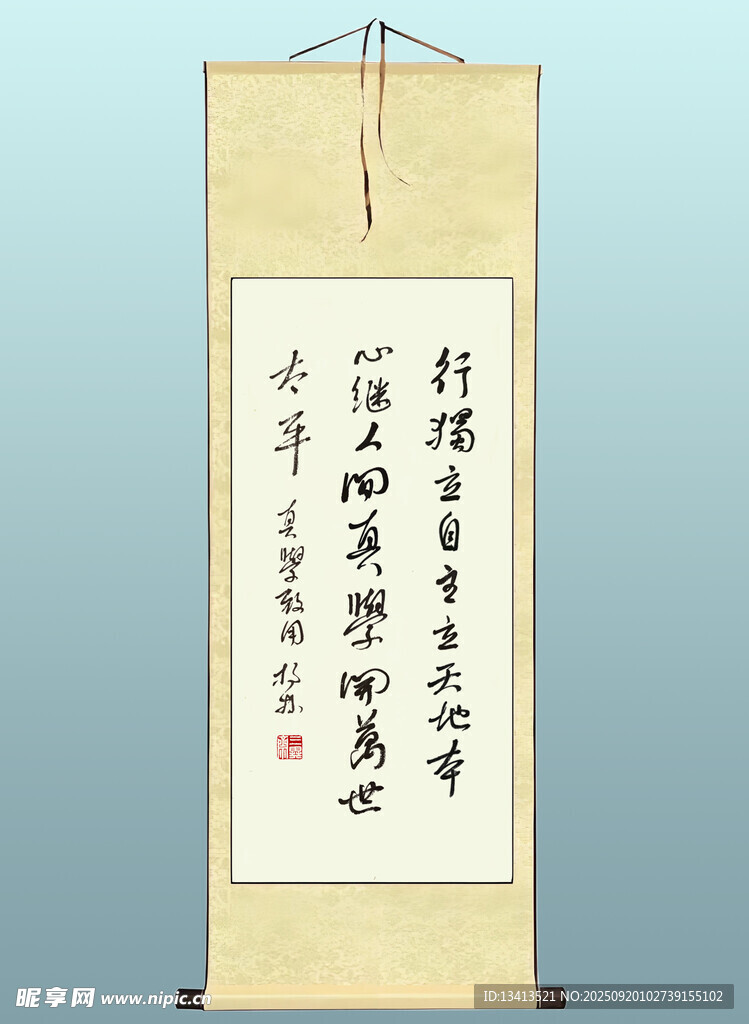 行獨立自主立天地本
心继人间真學開萬世
太平
真學致用
昵享网 www.nipic.cn
ID:13413521 NO:20250920102739155102